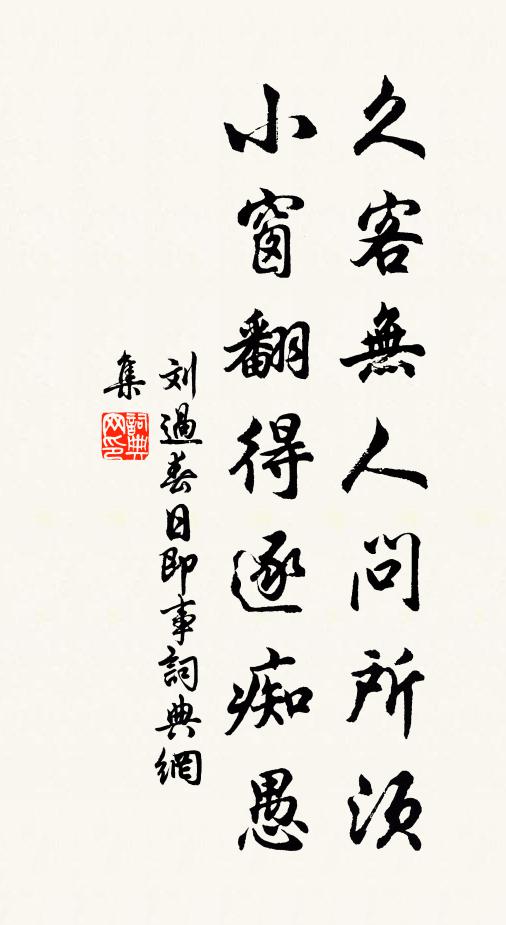 久客無人問所須
小窗翻得逐痴愚
刘過春日即事詞典網
集
詞典
网印